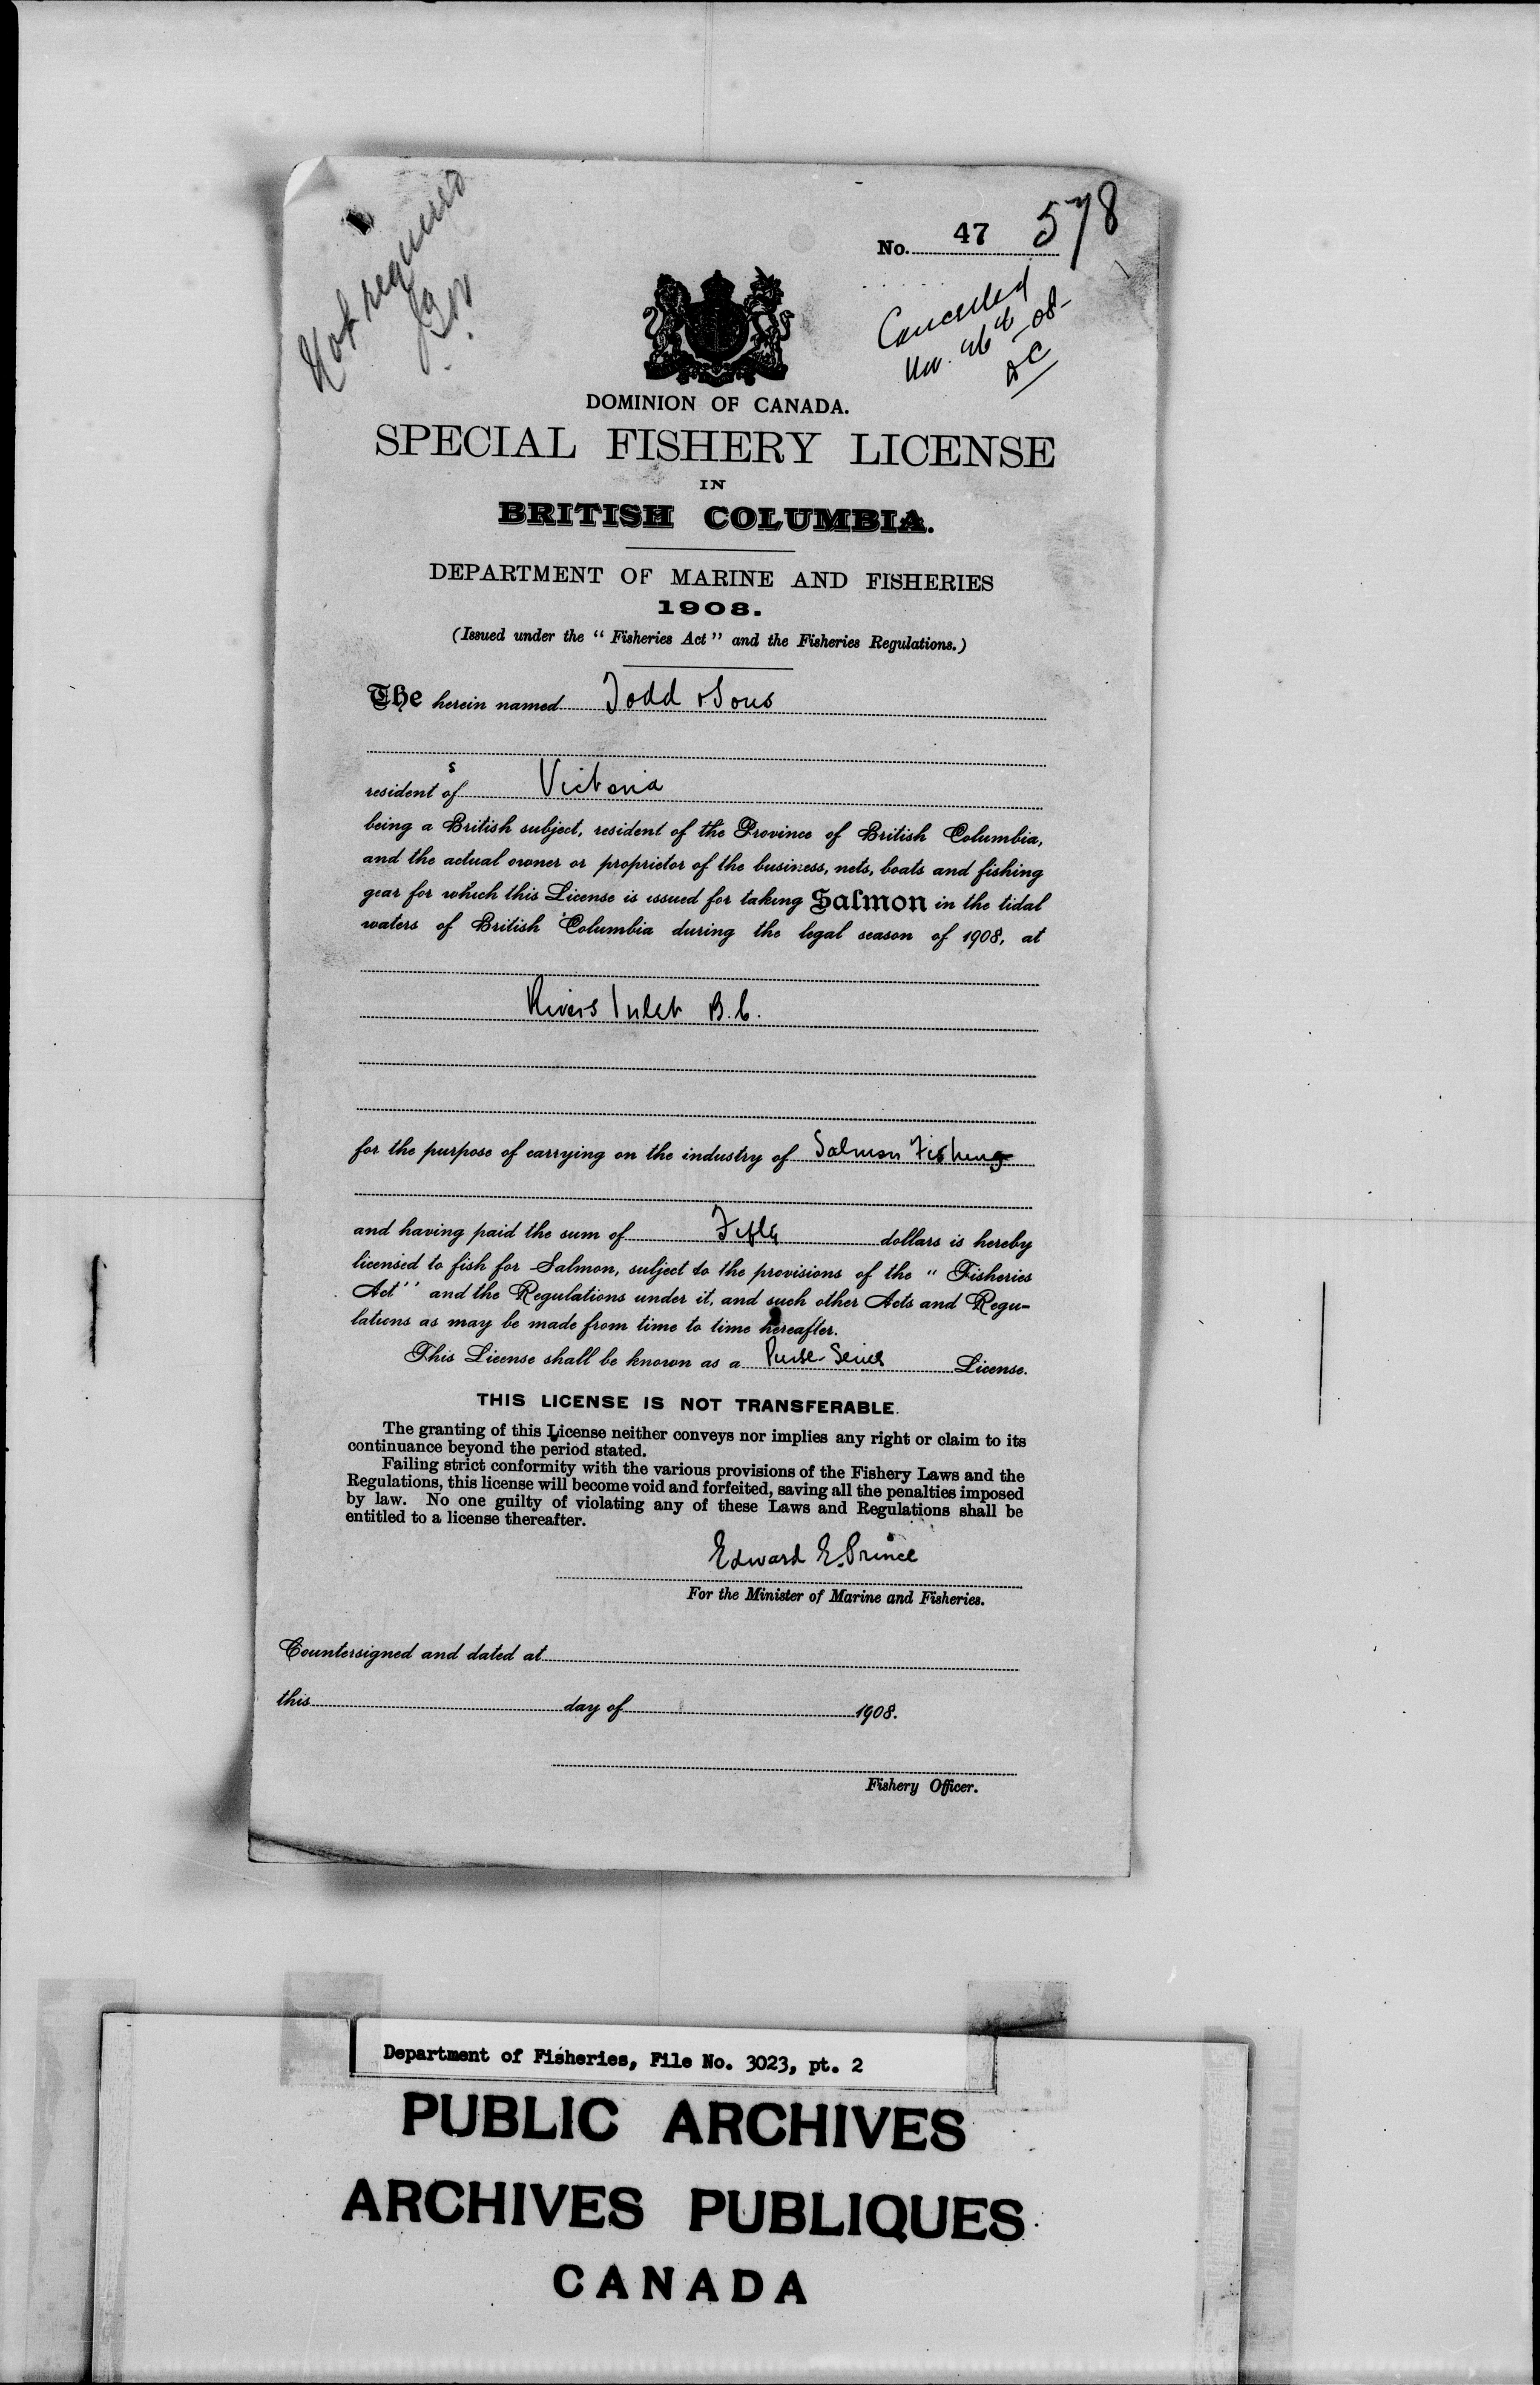 Not required
No. 47 578
Cancelled
DOMINION OF CANADA.
SPECIAL FISHERY LICENSE
IN
BRITISH COLUMBIA.
DEPARTMENT OF MARINE AND FISHERIES
1908.
(Issued under the "Fisheries Act" and the Fisheries Regulations.)
The herein named Todd & Sons
residents of Victoria
being a British subject, resident of the Province of British Columbia,
and the actual owner or proprietor of the business, nets, boats and fishing
gear for which this License is issued for taking Salmon in the tidal
waters of British Columbia during the legal season of 1908, at
Rivers Inlet B.C.
for the purpose of carrying on the industry of Salmon Fishing
and having paid the sum of Fifty dollars is hereby
licensed to fish for Salmon, subject to the provisions of the "Fisheries
Act" and the Regulations under it, and such other Acts and Regu-
lations as may be made from time to time hereafter.
This License shall be known as a Purse-Seine License.
THIS LICENSE IS NOT TRANSFERABLE.
The granting of this License neither conveys nor implies any right or claim to its
continuance beyond the period stated.
Failing strict conformity with the various provisions of the Fishery Laws and the
Regulations, this license will become void and forfeited, saving all the penalties imposed
by law. No one guilty of violating any of these Laws and Regulations shall be
entitled to a license thereafter.
Edward E. Prince
For the Minister of Marine and Fisheries.
Countersigned and dated at
this day of 1908.
Fishery Officer.
Department of Fisheries, File No. 3023, pt. 2
PUBLIC ARCHIVES
ARCHIVES PUBLIQUES
CANADA